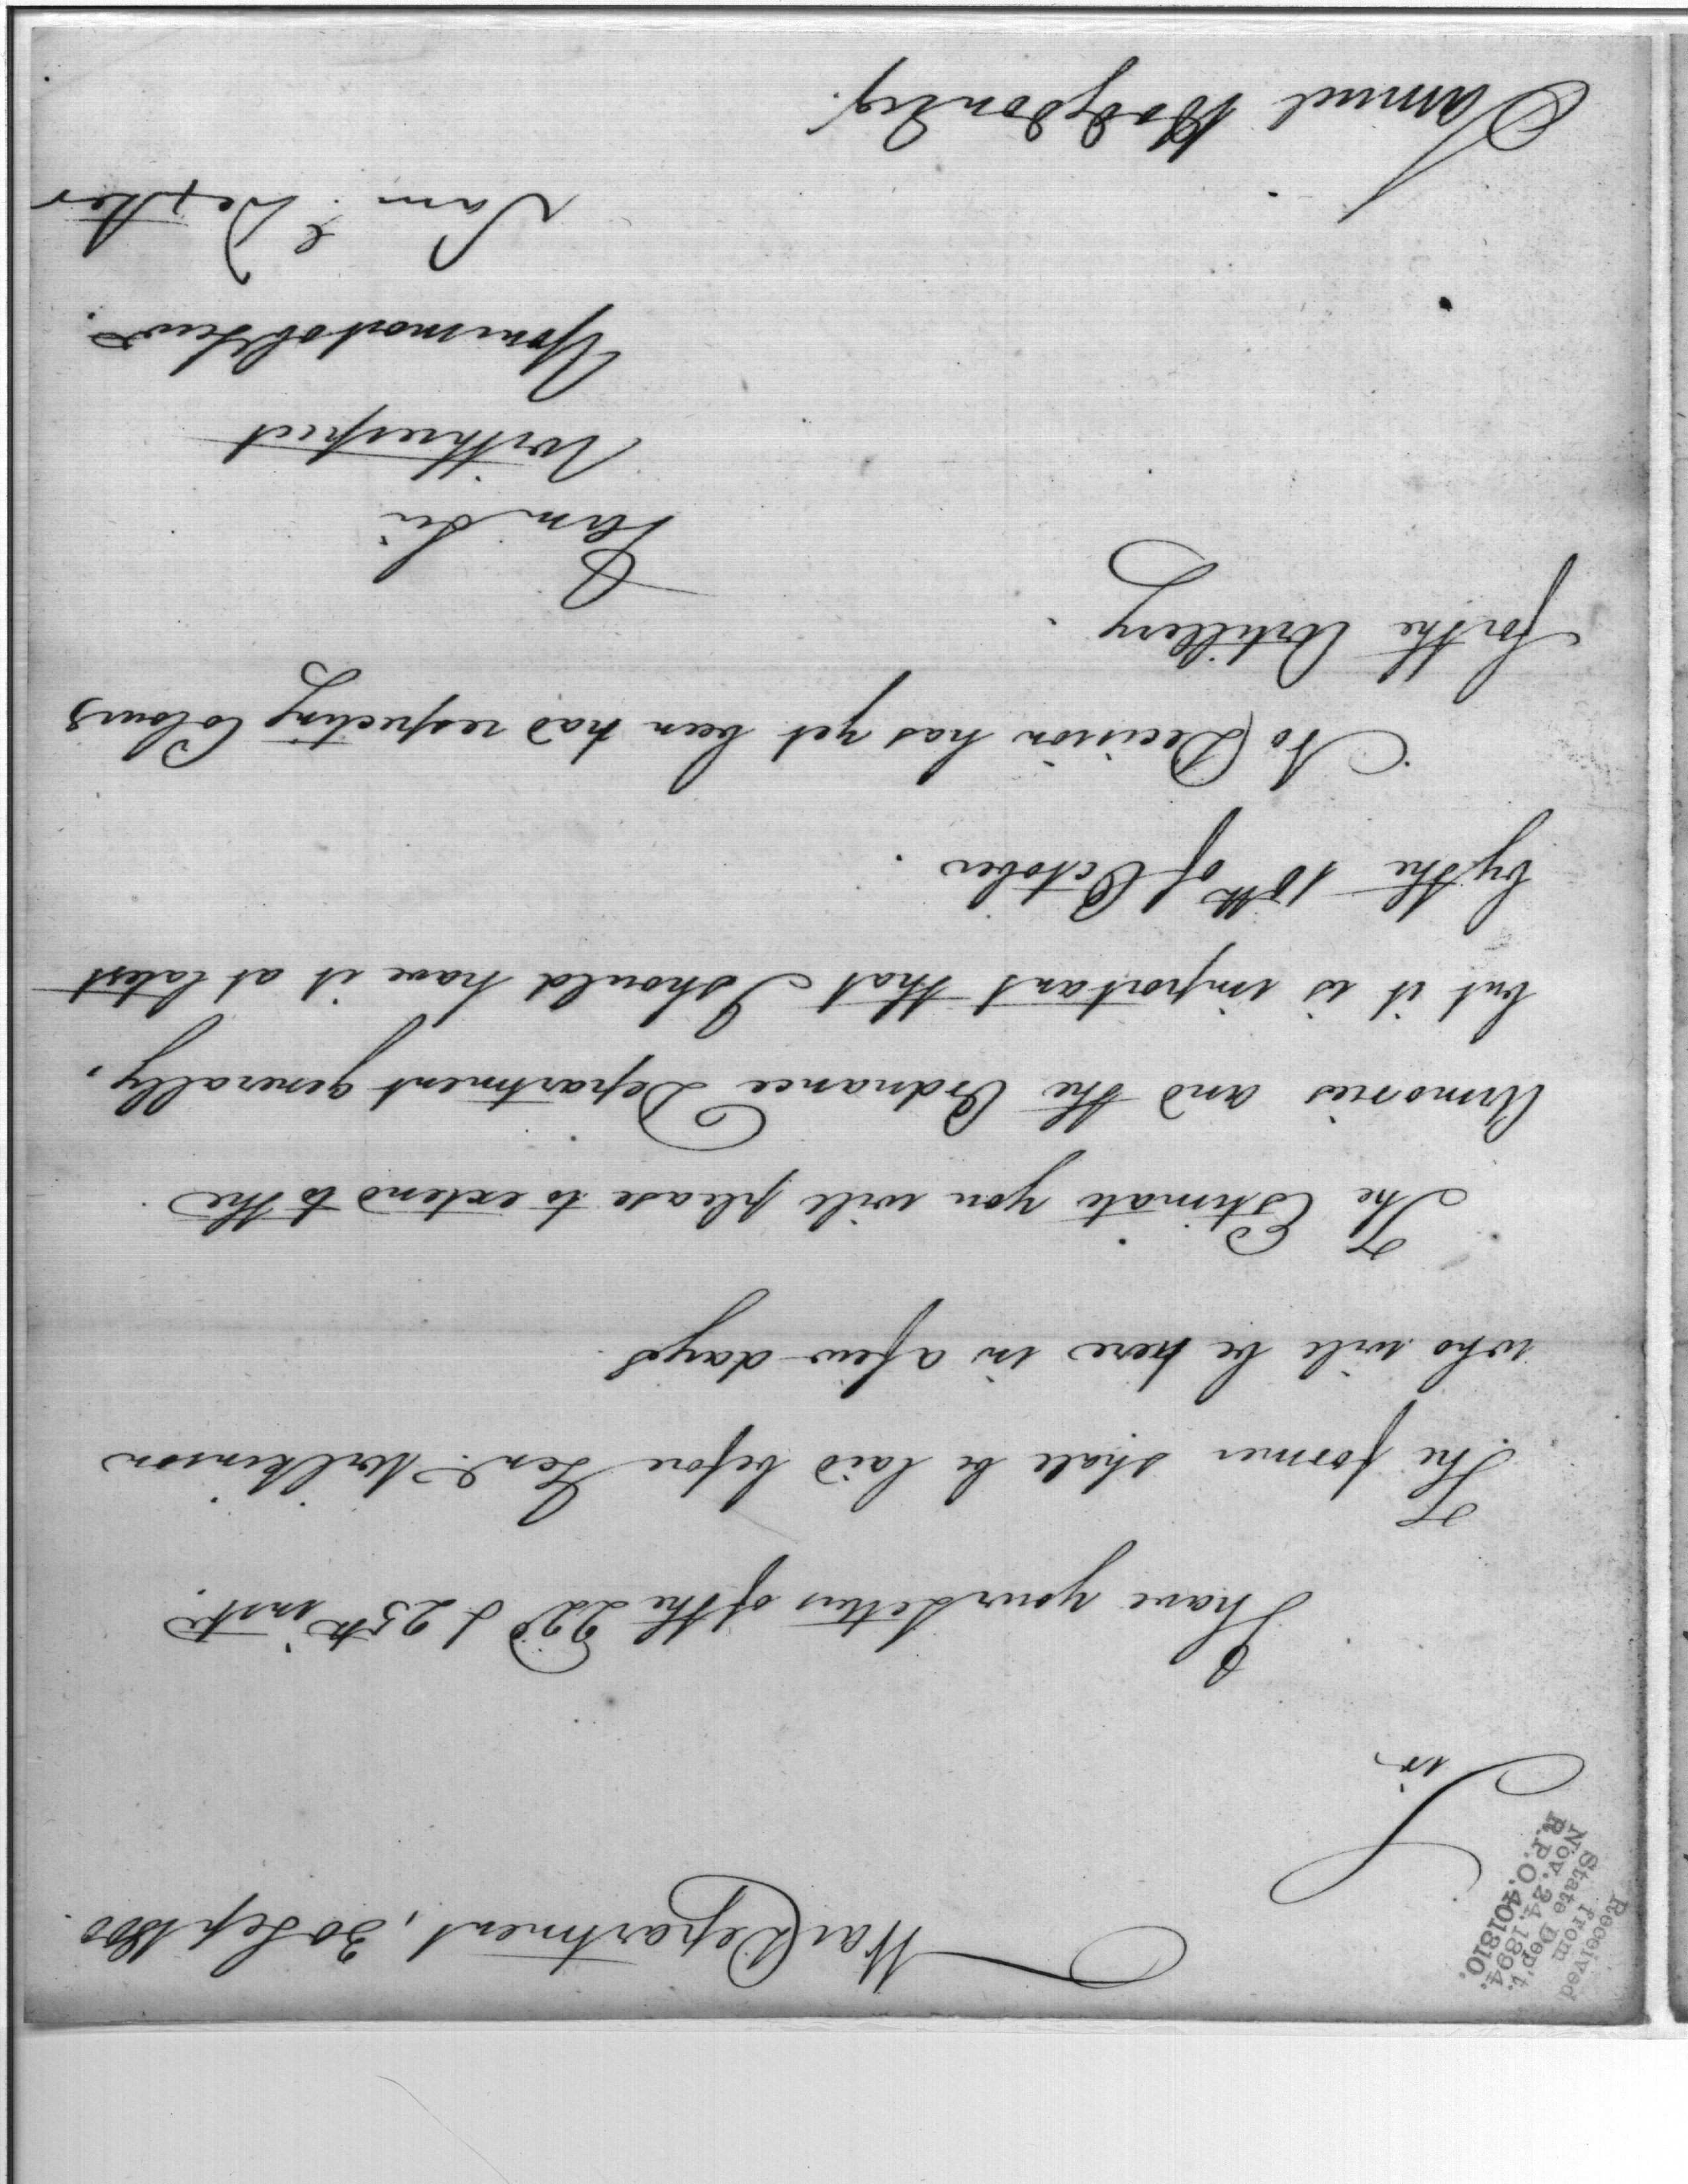 Received
from
State Dep't.
Nov. 24, 1894.
R.P.O. 401810.
War Department, 30 Sep 1800.
Sir
I have your Letters of the 22d & 25th inst.
The former shall be laid before Genl. Wilkinson
who will be here in a few days.
The Estimate you will please to extend to the
Armories and the Ordnance Department generally,
but it is important that I should have it at latest
by the 10th of October.
No Decision has yet been had respecting Colours
for the Artillery.
I am Sir
With respect
Your most ob Serv.
Saml. Dexter
Samuel Hodgdon Esq.